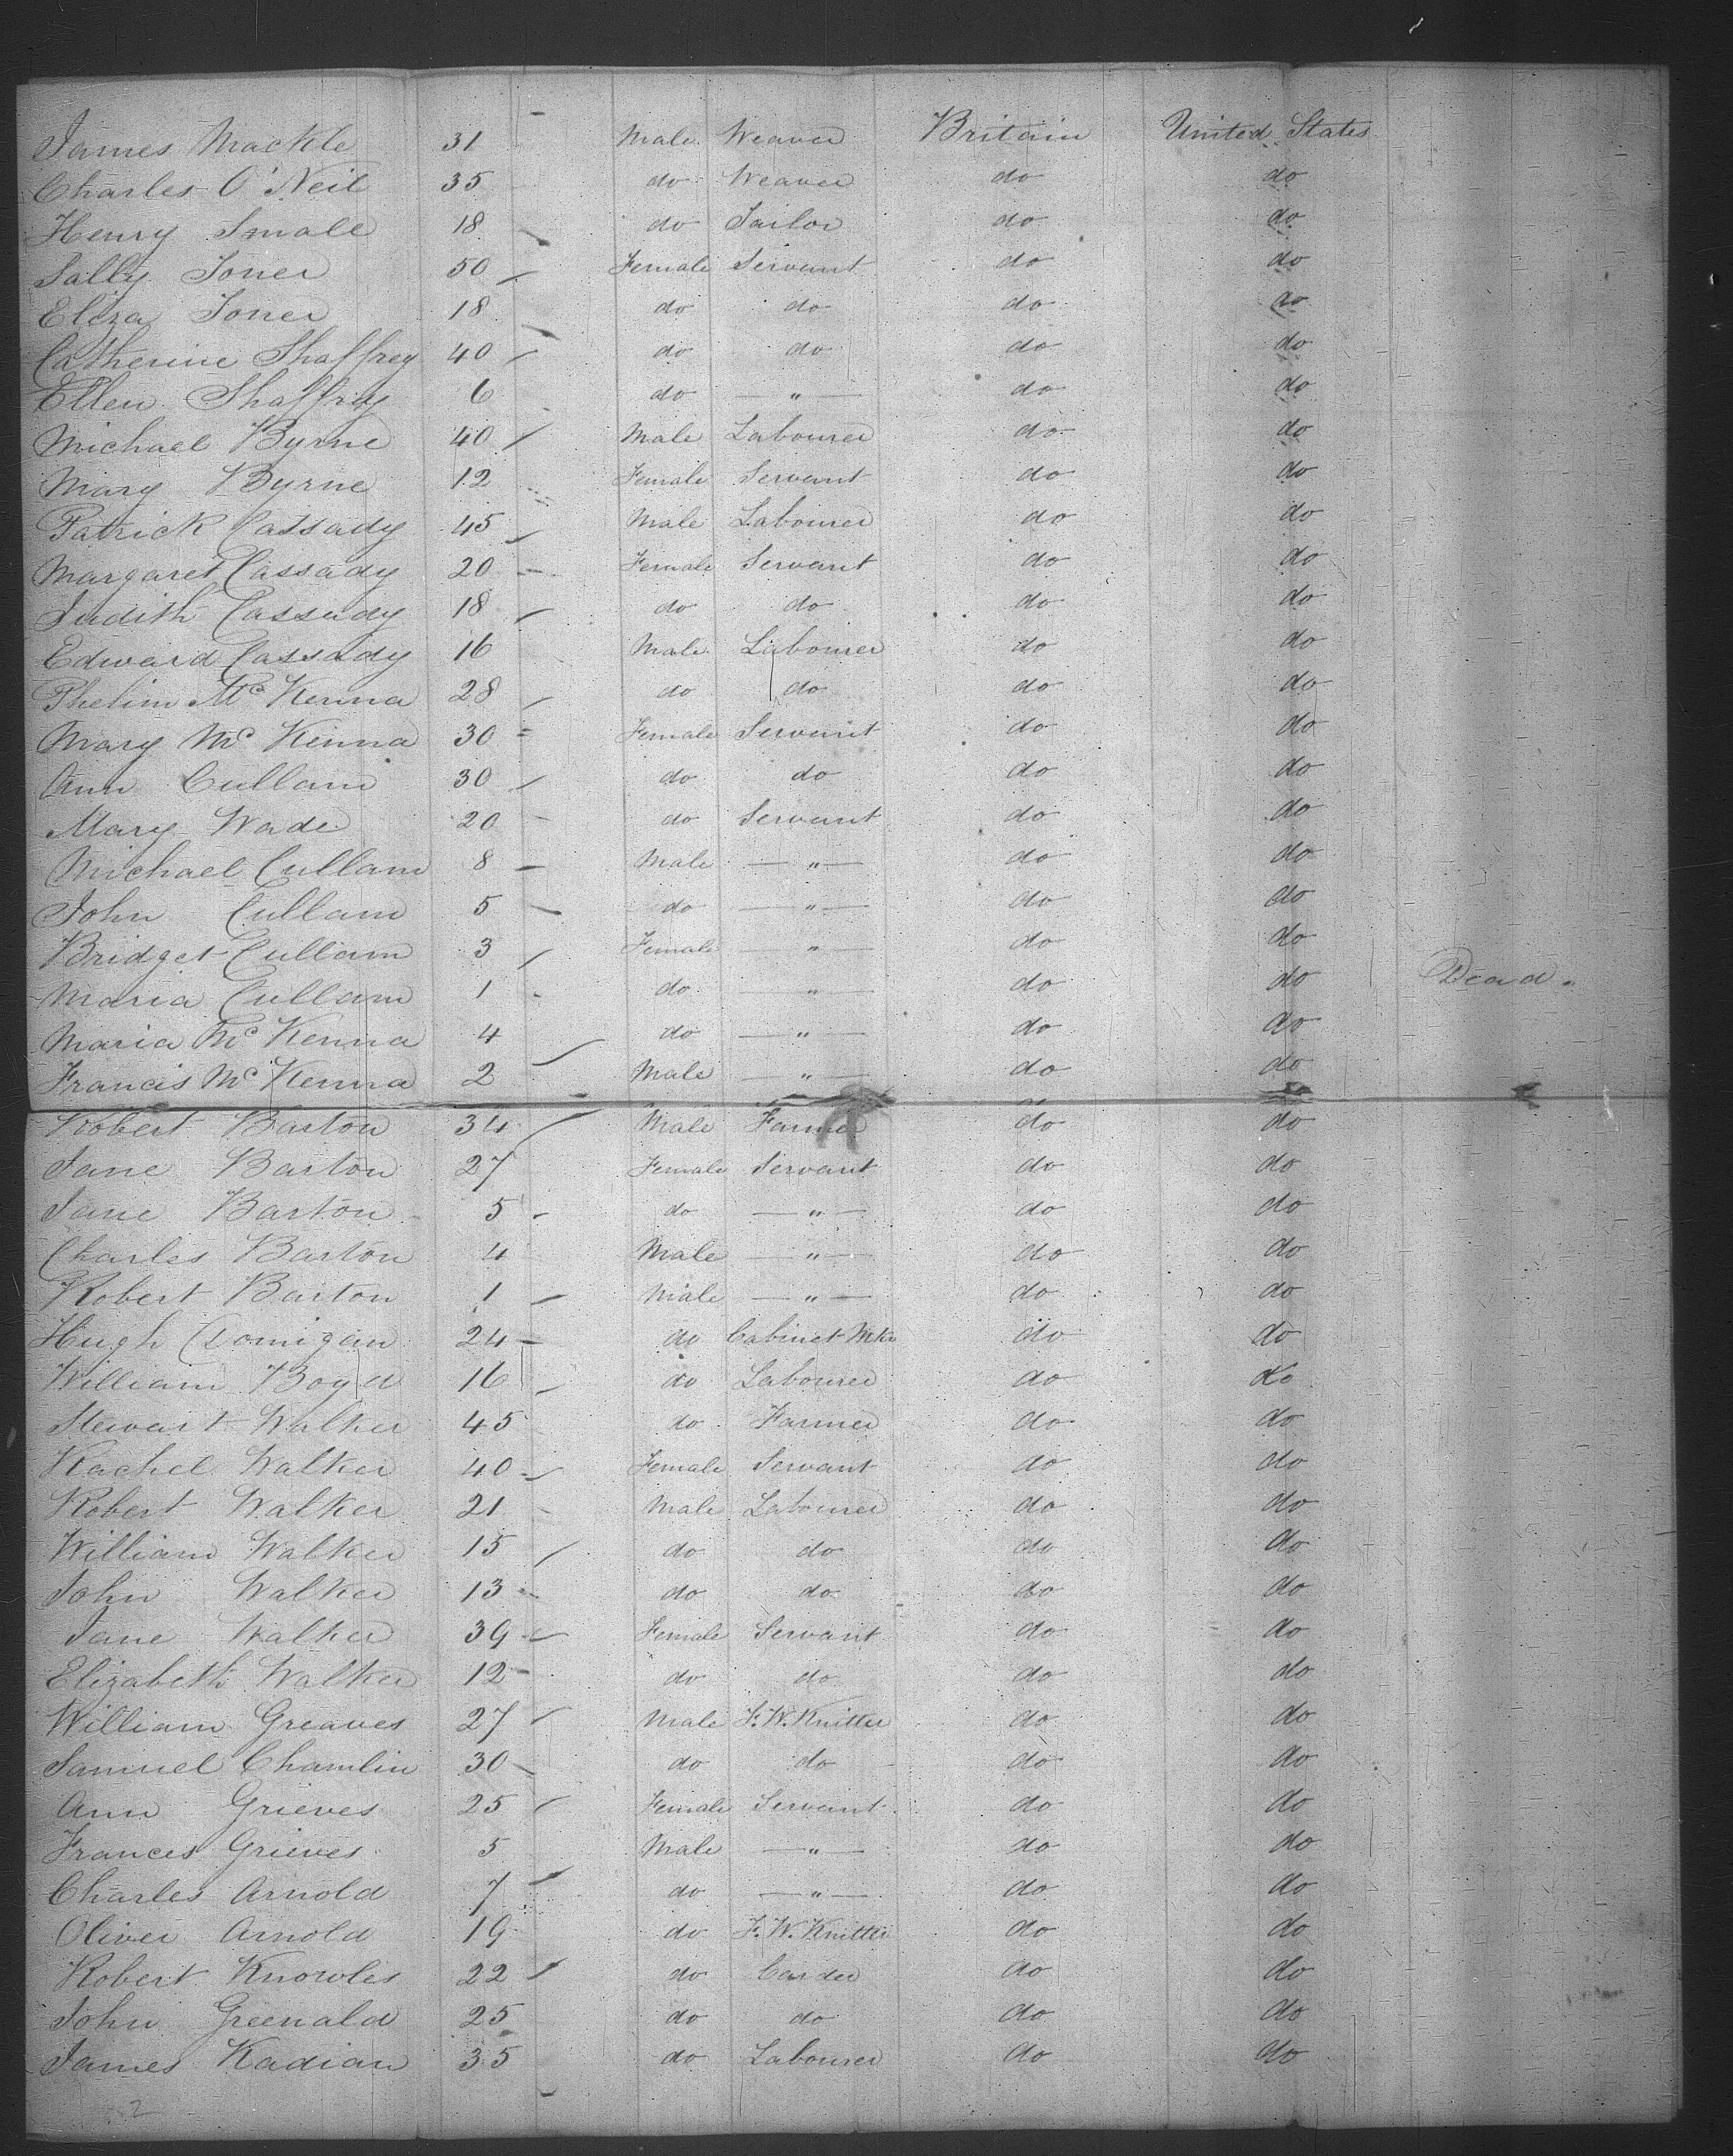 James Mackle 31 Male Weaver Britain United States
Charles O'Neil 35 do Weaver do do
Henry Smale 18 do Tailor do do
Sally Toner 50 Female Servant do do
Eliza Toner 18 do do do do
Catherine Shaffrey 40 do do do do
Ellen Shaffrey 6 do — " — do do
Michael Byrne 40 Male Labourer do do
Mary Byrne 12 Female Servant do do
Patrick Cassady 45 Male Labourer do do
Margaret Cassady 20 Female Servant do do
Judith Cassady 18 do do do do
Edward Cassady 16 Male Labourer do do
Phelim Mc Kenna 28 do do do do
Mary Mc Kenna 30 Female Servant do do
Ann Cullam 30 do do do do
Mary Wade 20 do Servant do do
Michael Cullam 8 Male — " — do do
John Cullam 5 do — " — do do
Bridget Cullam 3 Female — " — do do
Maria Cullam 1 do — " — do do Dead.
Maria Mc Kenna 4 do — " — do do
Francis Mc Kenna 2 Male — " — do do
Robert Barton 34 Male Farmer do do
Jane Barton 27 Female Servant do do
Jane Barton 5 do — " — do do
Charles Barton 4 Male — " — do do
Robert Barton 1 Male — " — do do
Hugh 24 do Cabinet Mkr do do
William Boyd 16 do Labourer do do
Stewart Walker 45 do Farmer do do
Rachel Walker 40 Female Servant do do
Robert Walker 21 Male Labourer do do
William Walker 15 do do do do
John Walker 13 do do do do
Jane Walker 39 Female Servant do do
Elizabeth Walker 12 do do do do
William Greaves 27 Male F. W. Knitter do do
Samuel Chamlin 30 do do do do
Ann Grieves 25 Female Servant do do
Frances Grieves 5 Male — " — do do
Charles Arnold 7 do — " — do do
Oliver Arnold 19 do F. W. Knitter do do
Robert Knowles 22 do Carder do do
John Greenald 25 do do do do
James Kadian 35 do Labourer do do
2